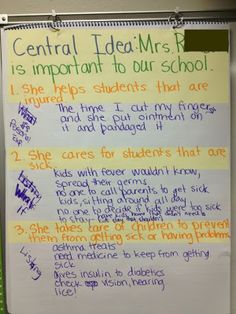 Central Idea: Mrs. R
is important to our school.
1. She helps students that are
injured.
The time I cut my finger
and she put ointment on
it and bandaged it
2. She cares for students that are
sick.
kids with fever wouldn't know,
spread their germs
no one to call parents to get sick
kids, sitting around all day
no one to decide if kids were too sick
to stay
3. She takes care of children to prevent
them from getting sick or having problems.
Listing
asthma treats
need medicine to keep from getting
sick
gives insulin to diabetics
check vision, hearing
lice!